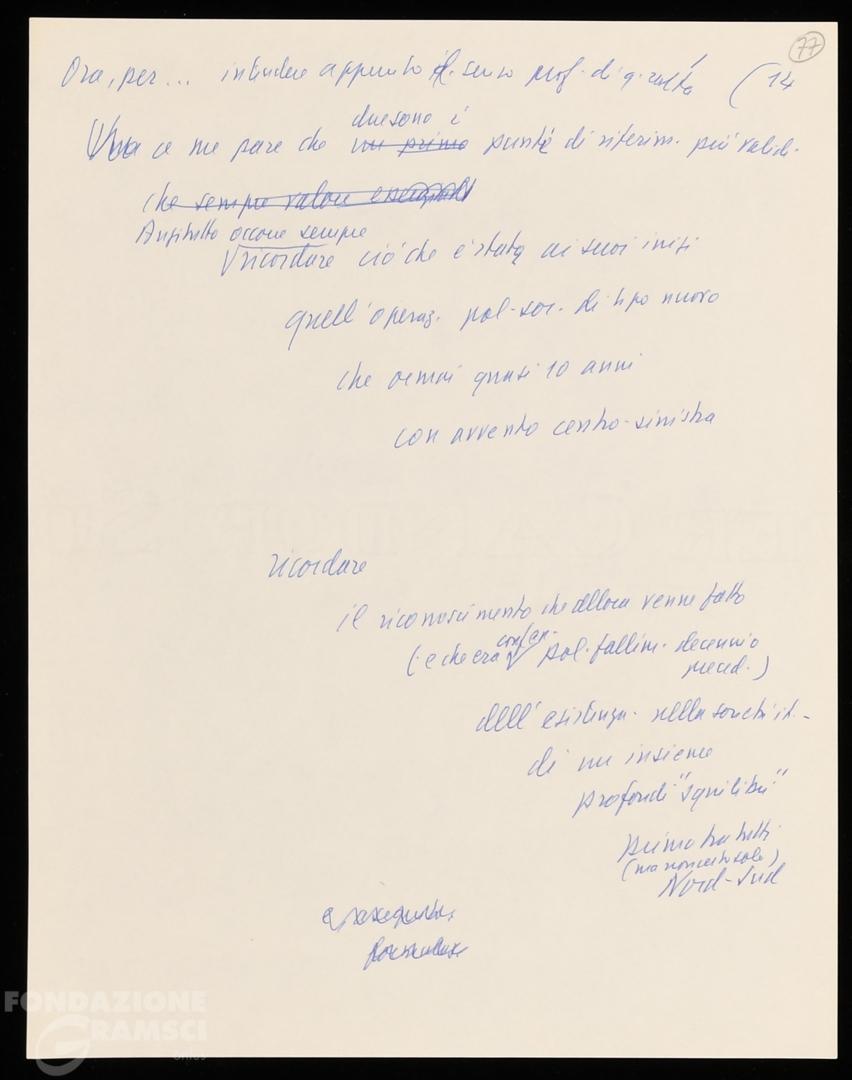 77
Ora, per... intendere appunto il senso prof. di q. realtà (14
due sono i
Ora a me pare che un primo punti di riferim. più valid.
che sempre valore
Anzitutto occorre sempre
ricordare ciò che è stata ai suoi inizi
quell'operaz. pol-soc. di tipo nuovo
che ormai quasi 10 anni
con avvento centro-sinistra
ricordare
il riconoscimento che allora venne fatto
(e che era pol. fallim. decennio
preced.)
dell'esistenza nella società it.
di un insieme
profondi "squilibri"
primo tra tutti
(ma non certo solo)
Nord-Sud
FONDAZIONE
GRAMSCI
ONLUS